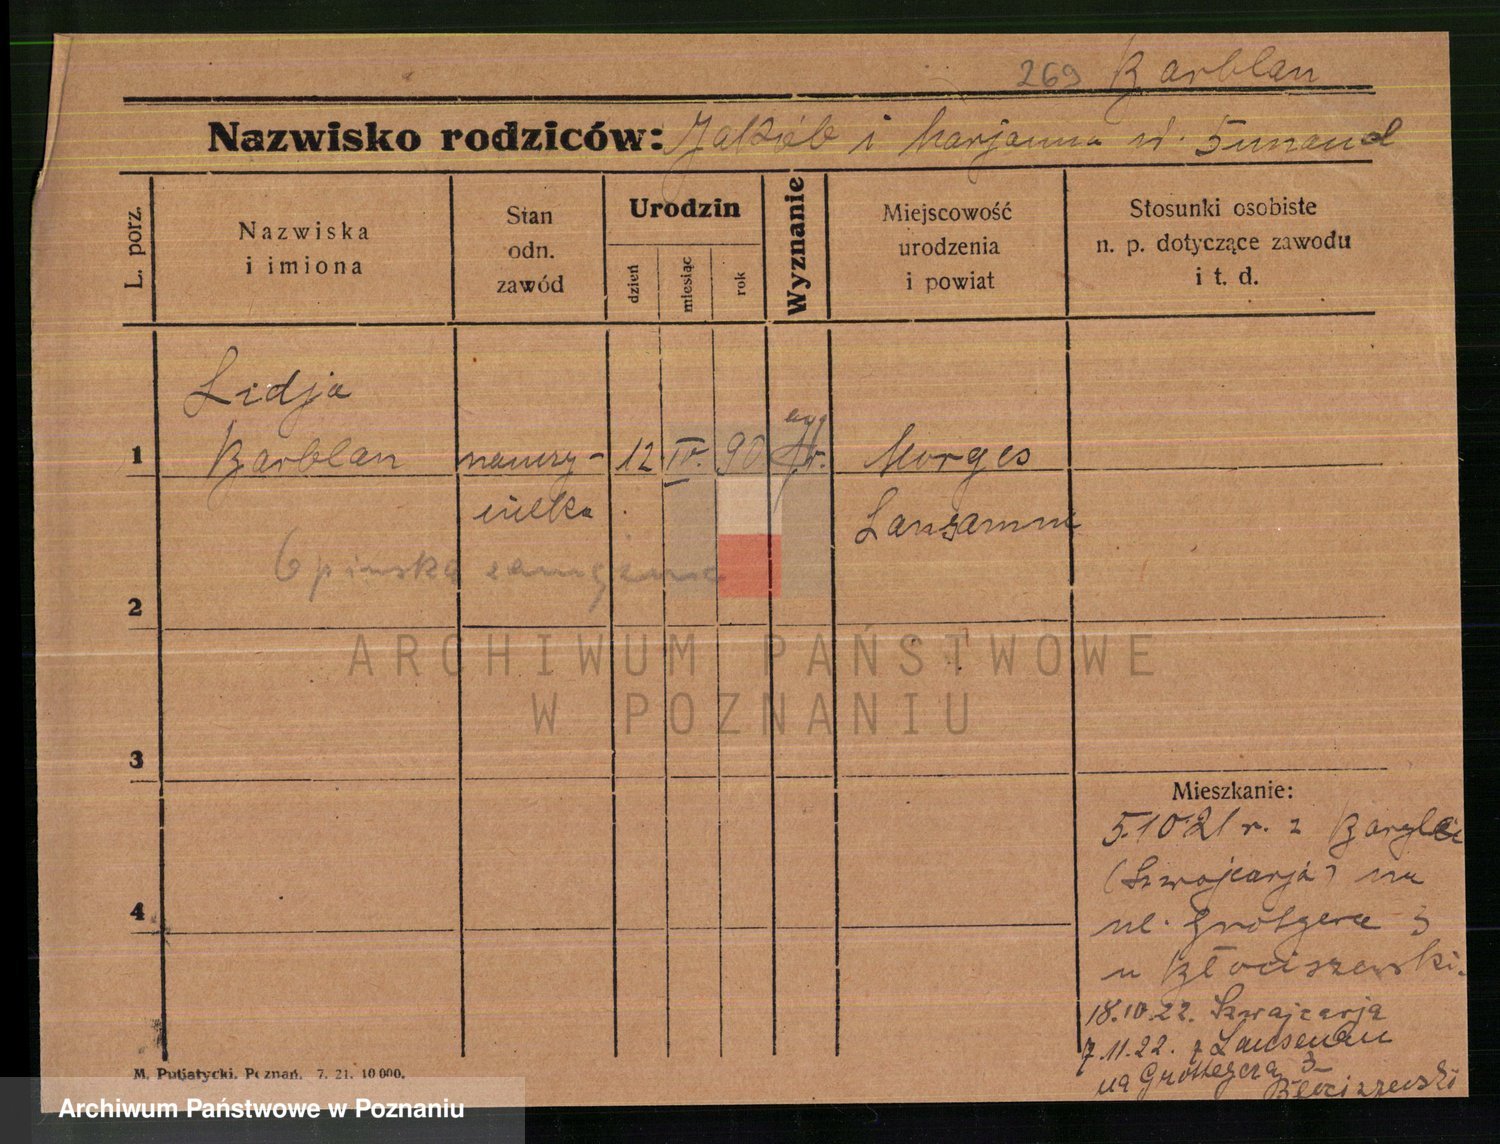 269 Barblan
Nazwisko rodziców: Jakób i Marjanna
L. porz.
Nazwiska
i imiona
Stan
odn.
zawód
Urodzin
dzień
miesiąc
rok
Wyznanie
Miejscowość
urodzenia
i powiat
Stosunki osobiste
n. p. dotyczące zawodu
i t. d.
Lidja
1 Barblan nauczy- 12 IV. 90 Morges
cielka
Opinska zamężna
2
3
4
Mieszkanie:
5.10 21 r. z
(Szwajcarja) na
ul. Grotgera 3
u Błociszewski.
18.10.22. Szwajcarja
7.11.22. z
na Grottgera 3
Błociszewski
M. Putiatycki, Poznań. 7. 21. 10 000.
ARCHIWUM PAŃSTWOWE
W POZNANIU
Archiwum Państwowe w Poznaniu